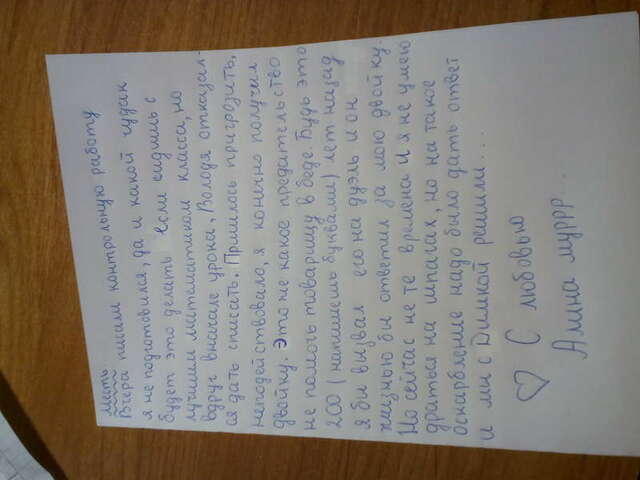 Месть
Вчера писали контрольную работу
я не подготовился, да и какой чудак
будет это делать если сидишь с
лучшим математиком класса, но
вдруг вначале урока, Володя отказал-
ся дать списать. Пришлось пригрозить,
неподействовало, я конечно получил
двойку. Это же какое предательство
не помочь товарищу в беде. Будь это
200 (напишешь буквами) лет назад
я бы вызвал его на дуэль и он
жизнью бы ответил за мою двойку.
Но сейчас не те времена и я не умею
драться на шпагах, но на такое
оскарбление надо было дать ответ
и мы с Димкой решили...
С любовью
Алина муррр...